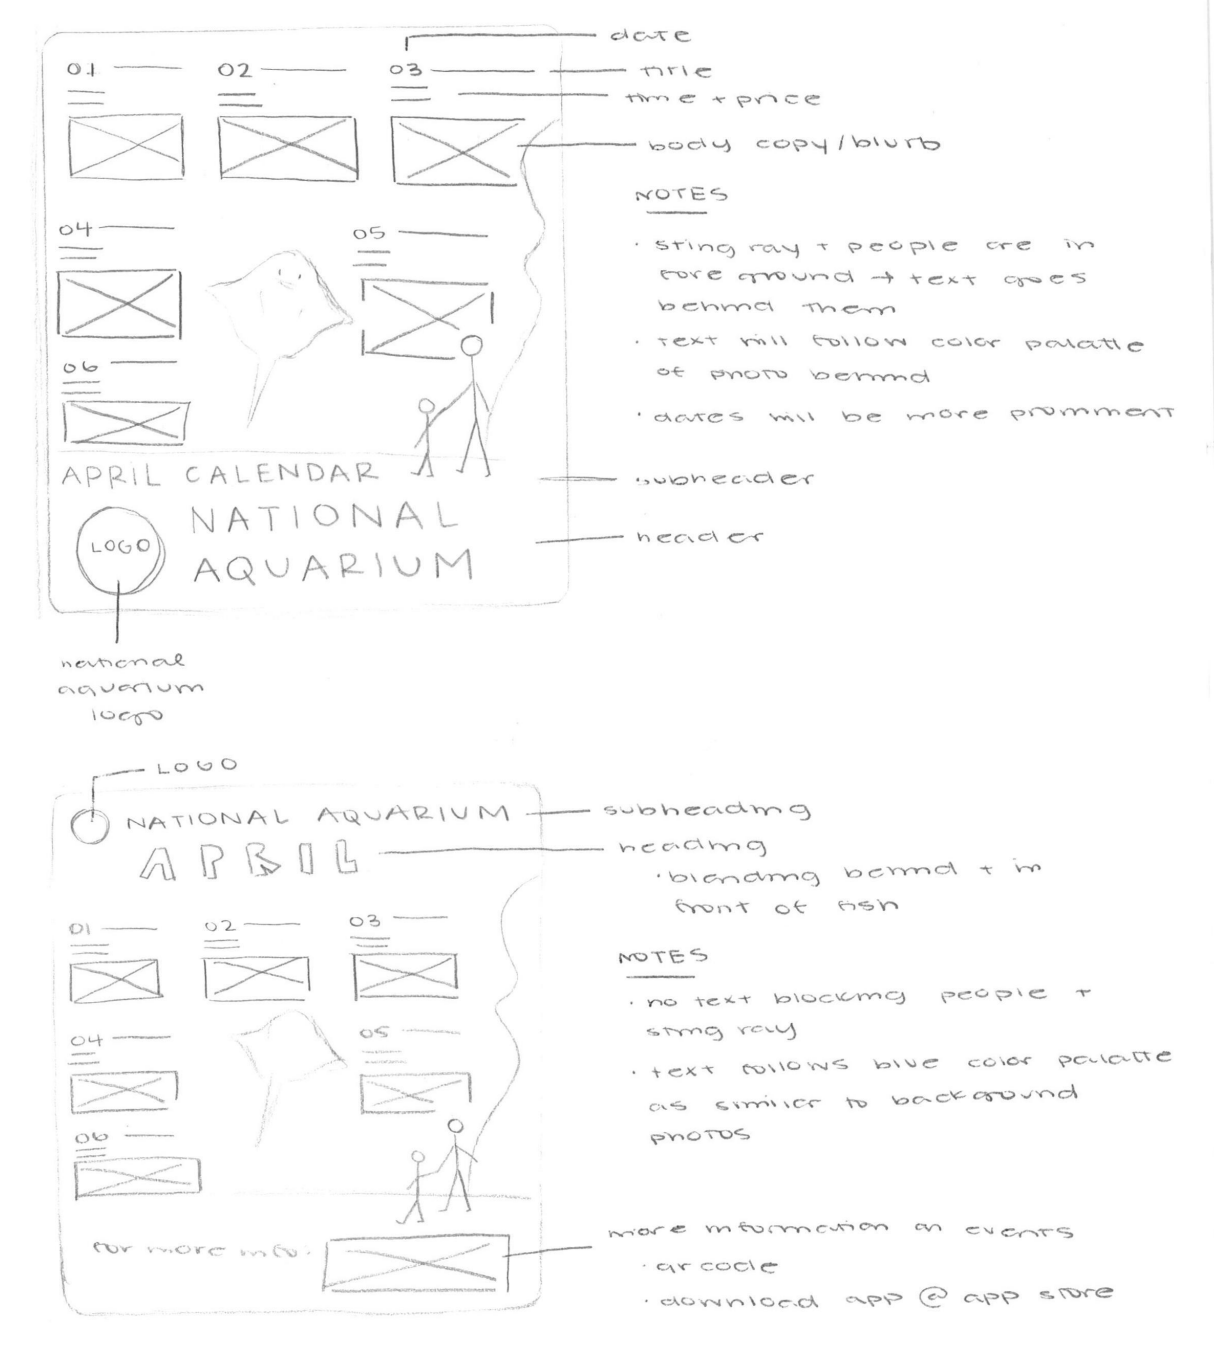 date
01
02
03
title
time + price
body copy/blurb
NOTES
· sting ray + people are in
foreground → text goes
behind them
· text will follow color palatte
of photo behind
· dates will be more prominent
04
05
06
APRIL CALENDAR
subheader
LOGO
NATIONAL
AQUARIUM
header
national
aquarium
logo
LOGO
NATIONAL AQUARIUM
subheading
APRIL
heading
· blending behind + in
front of fish
01
02
03
NOTES
· no text blocking people +
sting ray
· text follows blue color palatte
as similar to background
photos
04
05
06
for more info.
more information on events
· qr code
· download app @ app store